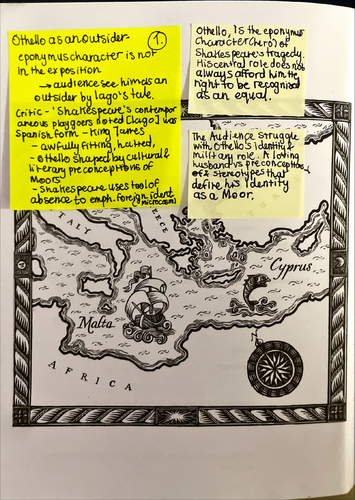 Othello as an outsider-
1.
eponymus character is not
in the exposition
→ audience see him as an
outsider by Iago's tale.
Critic - 'Shakespeare's contempor
aneous playgoers noted Iago was
Spanish form - King James'
- awfully fitting, hatred,
- Othello shaped by cultural &
literary preconceptions of
Moors'
- Shakespeare uses tool of
absence to emph. foreign ident.
(microcosm)
Othello, is the eponymus
character (hero) of
Shakespeare's tragedy.
His central role does not
always afford him the
right to be recognised
as an equal.
The Audience struggle
with Othello's identity &
military role. A loving
husband vs preconceptions
of stereotypes that
define his identity
as a Moor.
ITALY
Cyprus
Malta
N
AFRICA